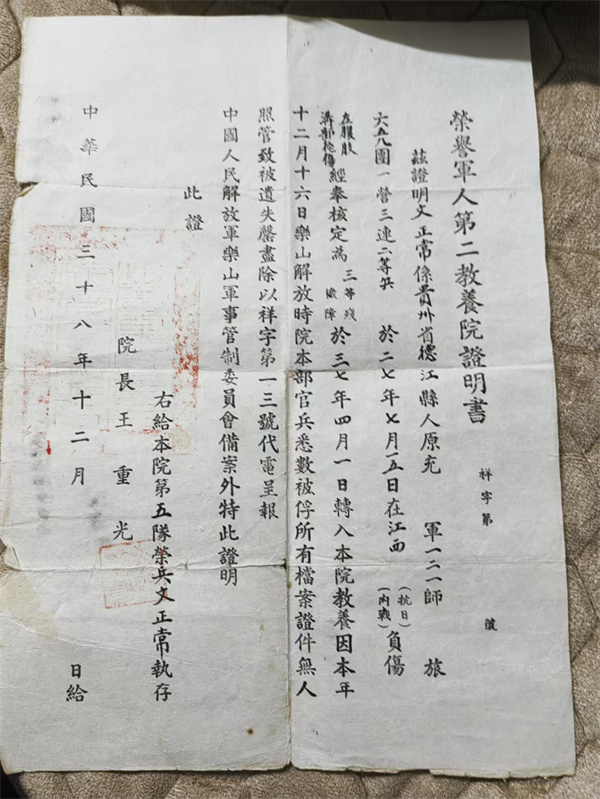 榮譽軍人第二教養院證明書
祥字第 號
茲證明文正常係貴州省德江縣人原充 軍一二一師 旅
六五八團一營三連二等兵 於二七年七月一五日在江西 (抗日)(內戰) 負傷
經奉核定為 三等殘 於三七年四月一日轉入本院教養因本年
十二月十六日樂山解放時院本部官兵悉數被俘所有檔案證件無人
照管致被遺失罄盡除以祥字第一三號代電呈報
中國人民解放軍樂山軍事管制委員會備案外特此證明
此證
右給本院第五隊榮兵文正常執存
院長王重光
中華民國三十八年十二月 日給